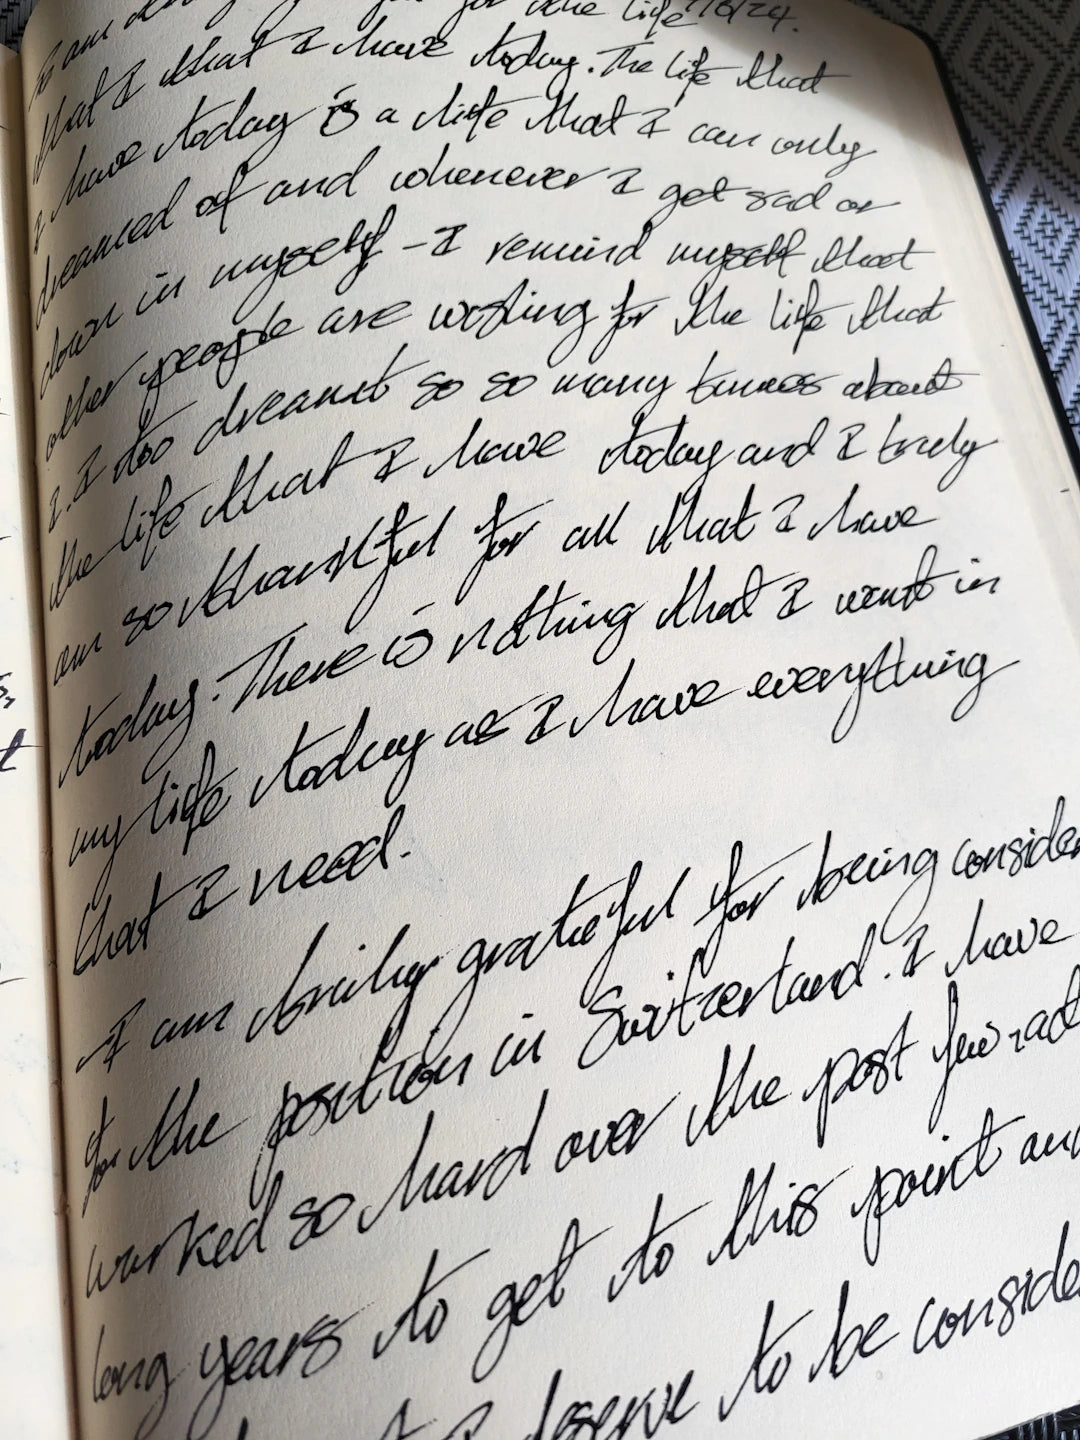 for the life 7/6/24.
that I that I have today. The life that
I have today is a life that I can only
dreamed of and whenever I get sad or
down in myself - I remind myself that
other people are wishing for the life that
I. I too dreamt so so many times about
the life that I have today and I truly
am so thankful for all that I have
today. There is nothing that I want in
my life today as I have everything
that I need.
I am truly grateful for being consider
for the position in Switzerland. I have
worked so hard over the past few
long years to get to this point
I deserve to be conside